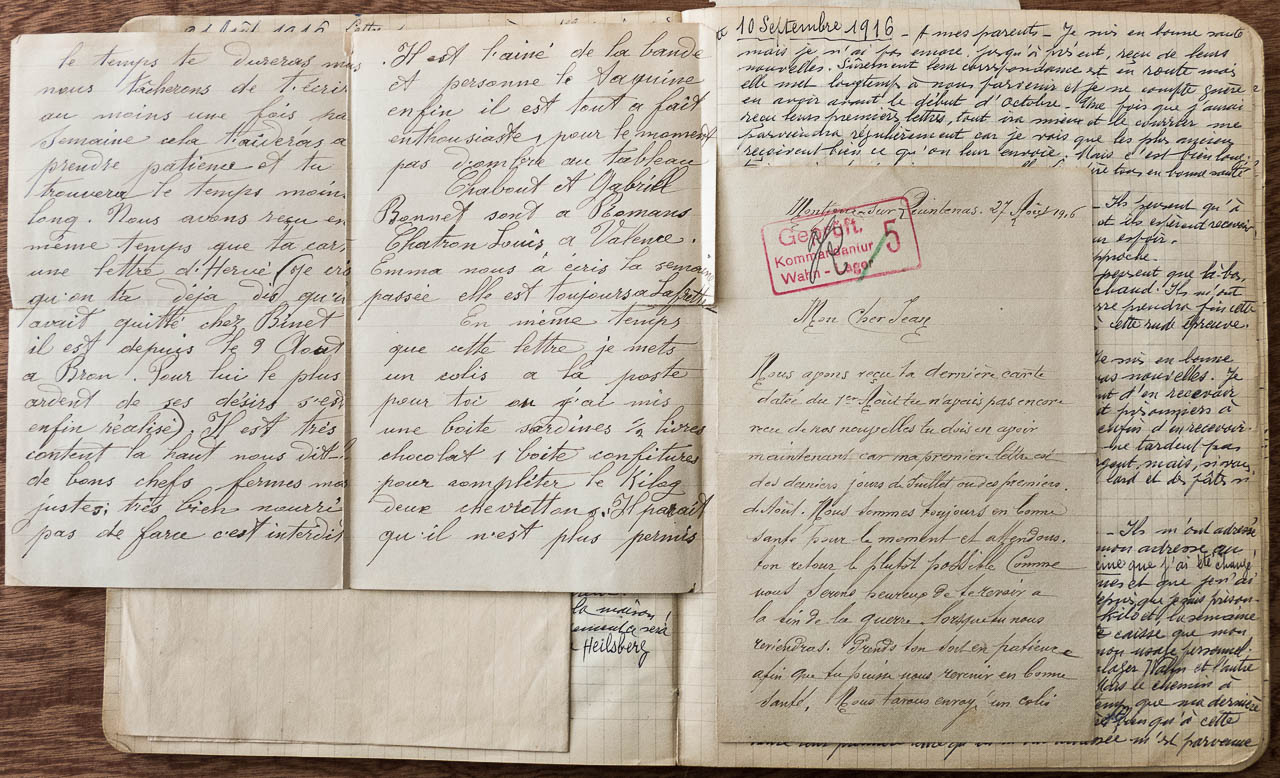 21 Août 1916
le temps te dureras mais
nous tâcherons de t'écrire
au moins une fois pa
semaine cela t'aideras a
prendre patience et tu
trouvera le temps moins
long. Nous avons reçu en
même temps que ta car
une lettre d'Hervé (je crois
qu'on t'a déja dis qu'il
avait quitté chez Binet
il est depuis le 9 Aout
a Bron. Pour lui le plus
ardent de ses désirs s'est
enfin réalisé). Il est très
content la haut nous dit-il
de bons chefs fermes mais
justes, très bien nourri
pas de farce c'est interdit
Il est l'ainé de la bande
et personne le taquine
enfin il est tout a fait
enthousiaste, pour le moment
pas d'ombre au tableau
Chabout et Gabriel
Bonnet sont a Romans
Chatron Louis a Valence.
Emma nous à écris la semaine
passée elle est toujours a
En même temps
que cette lettre je mets
un colis a la poste
pour toi ou j'ai mis
une boite sardines ½ livres
chocolat 1 boite confitures
pour compléter le Kilog
deux chevrettons. Il parait
qu'il n'est plus permis
la maison
sera
Heilsberg
10 Septembre 1916 - A mes parents - Je suis en bonne santé
mais je n'ai pas encore, jusqu'à présent, reçu de leurs
nouvelles. Sûrement leur correspondance est en route mais
elle met longtemps à nous parvenir et je ne compte guère
en avoir avant le début d'Octobre. Une fois que j'aurai
reçu leurs premières lettres, tout ira mieux et le courrier me
parviendra régulièrement car je vois que les plus anciens
reçoivent bien ce qu'on leur envoie. Mais c'est bien long
tous en bonne santé
Quintenas. 27 Août 1916
Geprüft.
Kommandantur 5
Wahn - Lager
Mon Cher Jean
Nous avons reçu ta dernière carte
datée du 1er Août tu n'avais pas encore
reçu de nos nouvelles tu dois en avoir
maintenant car ma première lettre est
des derniers jours de Juillet ou des premiers
d'Août. Nous sommes toujours en bonne
santé pour le moment et attendons
ton retour le plutôt possible Comme
nous serons heureux de te revoir a
la fin de la guerre lorsque tu nous
reviendras. Prends ton sort en patience
afin que tu puisse nous revenir en bonne
santé. Nous t'avons envoyé un colis
Ils peuvent qu'à
et ils espèrent recevoir
un espoir.
approche.
pensent que là-bas
chaud. Ils n'ont
prendra fin cette
à cette rude épreuve.
Je suis en bonne
nouvelles. Je
d'en recevoir
prisonniers à
d'en recevoir
ne tardent pas
argent, mais, si vous
lard et des pâtes
- Ils m'ont adressé
mon adresse au
que j'ai été changé
et que je n'ai
depuis que je suis prison-
kilos et, la semaine
caisse que mon
mon usage personnel.
lager Wahn et l'autre
le chemin à
temps que ma dernière
qu'à cette
m'est parvenue